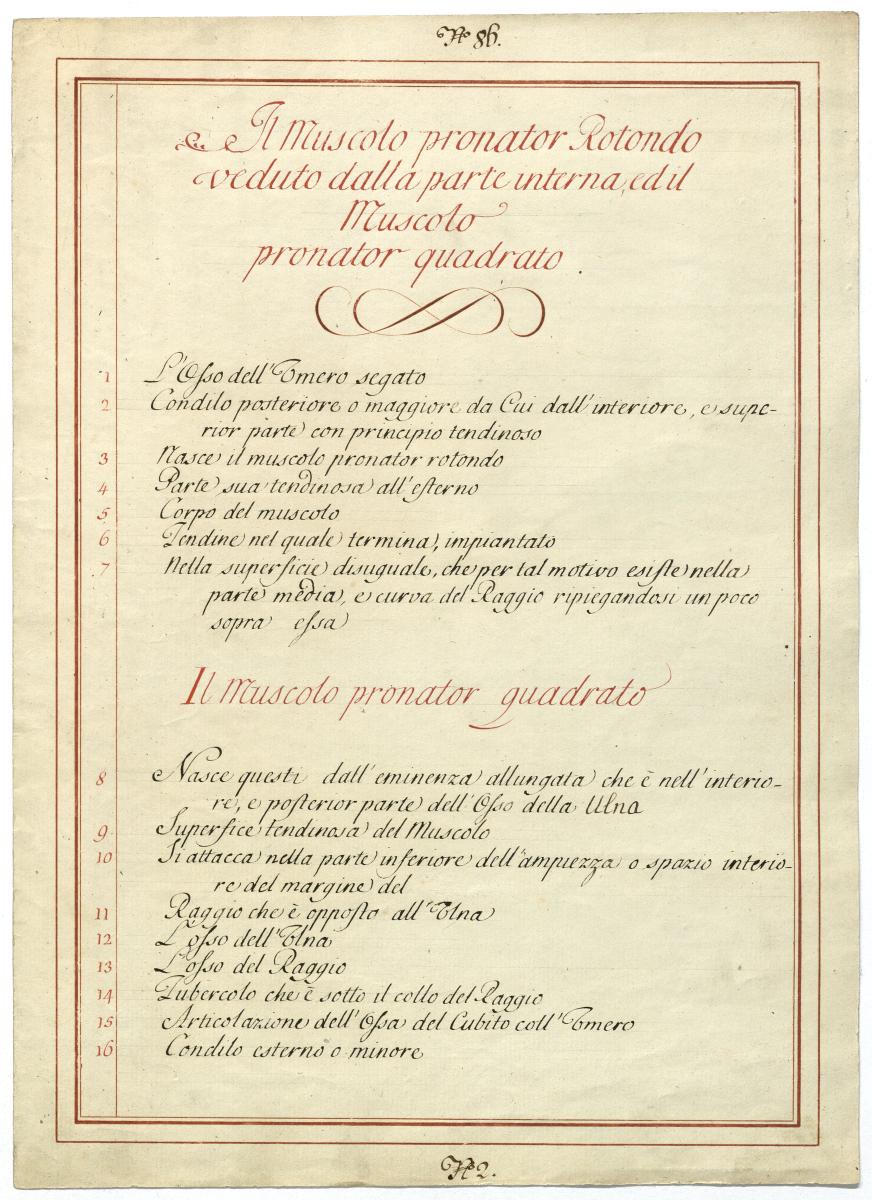 No 86.
Il Muscolo pronator Rotondo
veduto dalla parte interna, ed il
Muscolo
pronator quadrato
1 L'Osso dell'Umero segato
2 Condilo posteriore o maggiore da Cui dall'interiore, e supe-
rior parte con principio tendinoso
3 Nasce il muscolo pronator rotondo
4 Parte sua tendinosa all'esterno
5 Corpo del muscolo
6 Tendine nel quale termina, impiantato
7 Nella superficie disuguale, che per tal motivo esiste nella
parte media, e curva del Raggio ripiegandosi un poco
sopra essa
Il Muscolo pronator quadrato
8 Nasce questi dall'eminenza allungata che è nell'interio-
re, e posterior parte dell'Osso della Ulna
9 Superfice tendinosa del Muscolo
10 Si attacca nella parte inferiore dell'ampiezza o spazio interio-
re del margine del
11 Raggio che è opposto all'Ulna
12 L'osso dell'Ulna
13 L'osso del Raggio
14 Tubercolo che è sotto il collo del Raggio
15 Articolazione dell'Ossa del Cubito coll'Umero
16 Condilo esterno o minore
No 2.